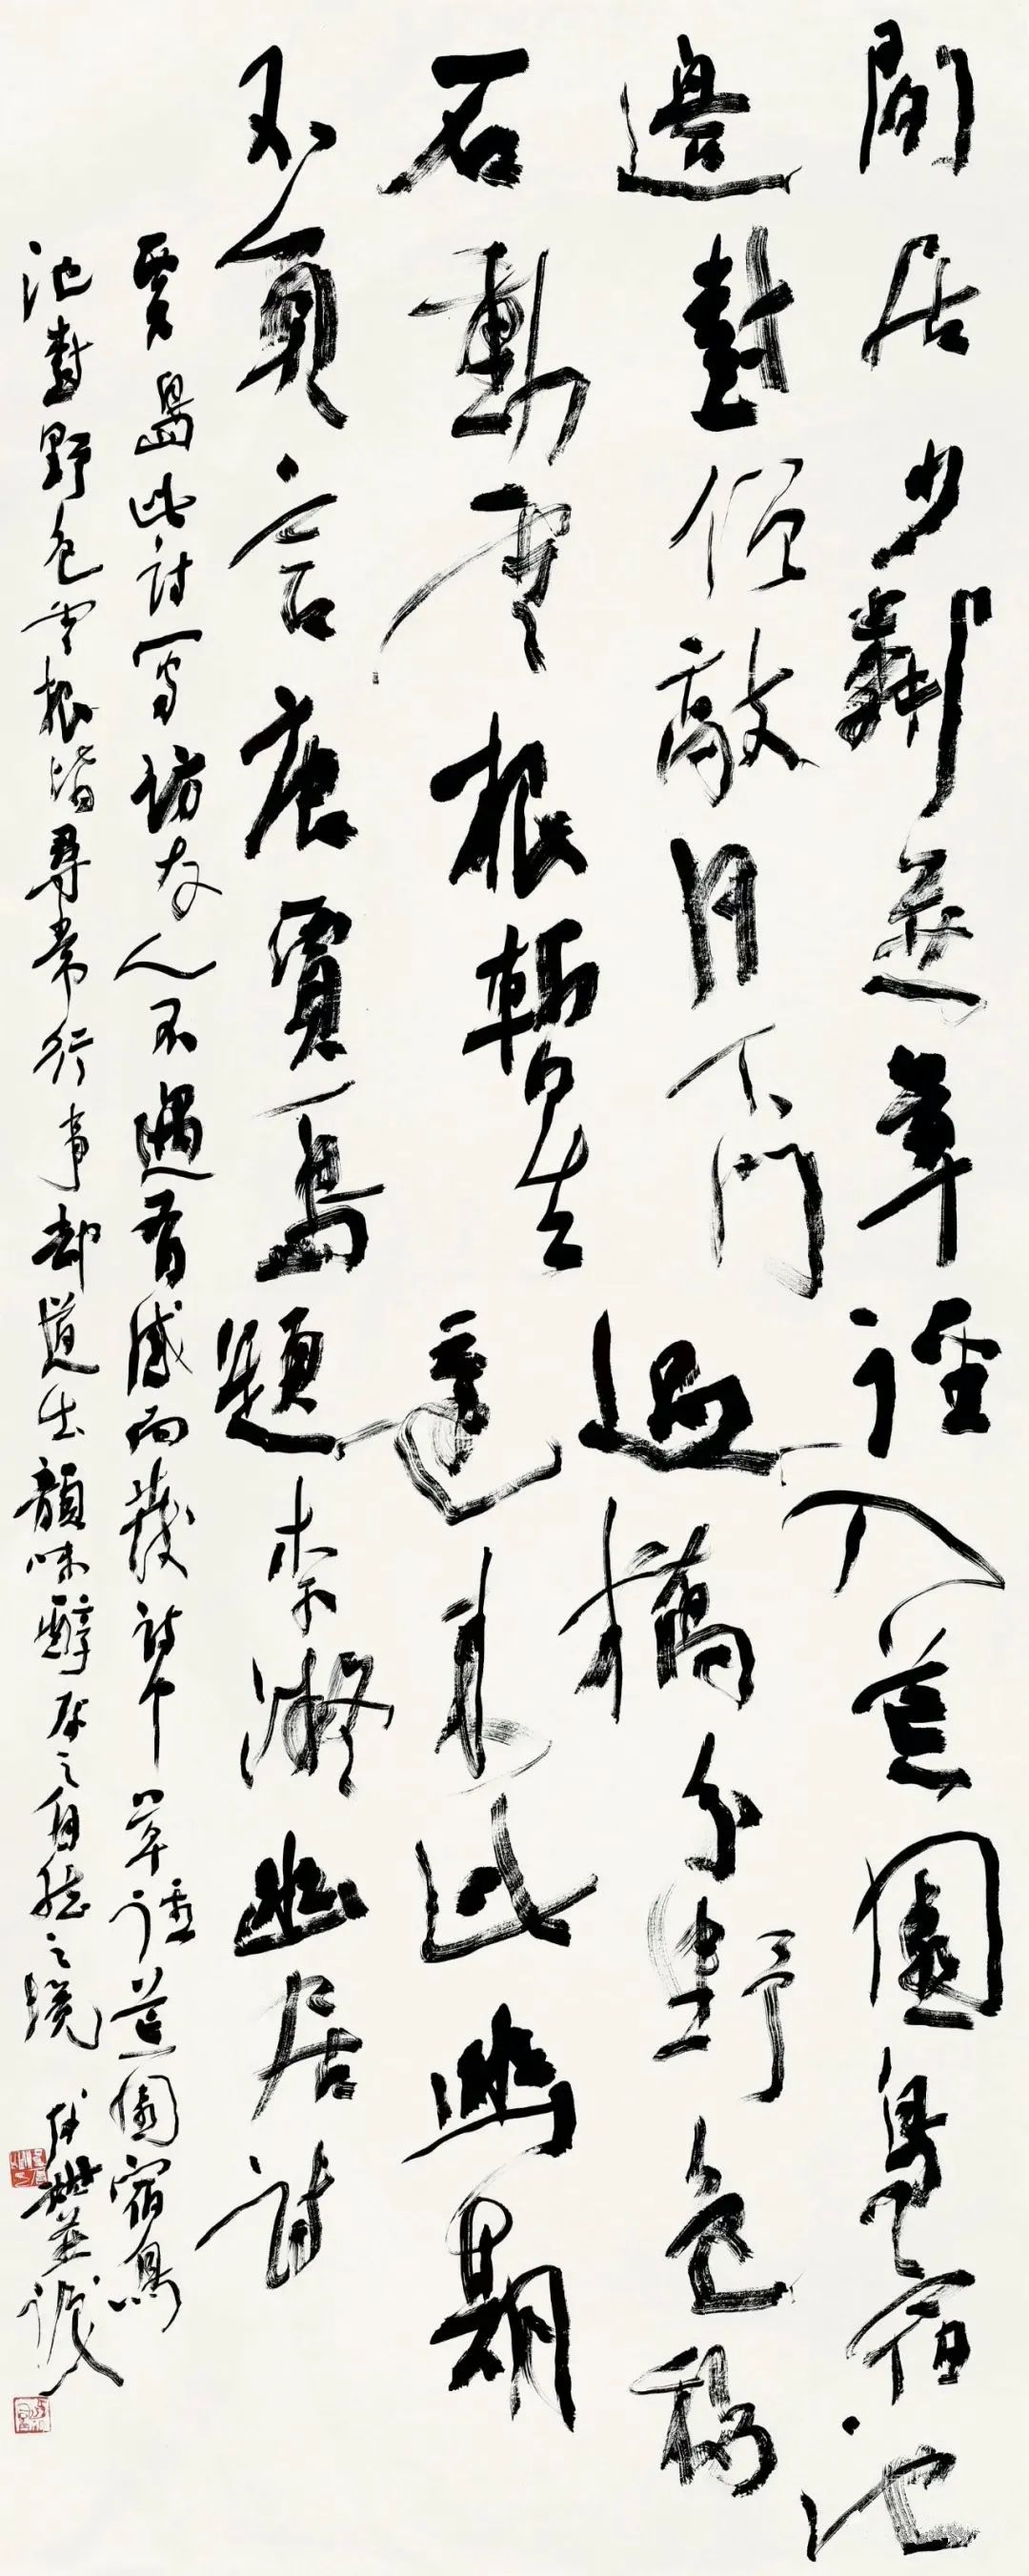 閒居少鄰並草徑入荒園鳥宿池
邊對僧敲月下門過橋分野色移
石動雲根暫去還來此幽期
不負言唐賈島題李凝幽居詩
賈島此詩寫訪友人不遇有感而發詩中草徑荒園宿鳥
池邊野色雲根皆尋常行事却道出韻味醇厚之自然之境